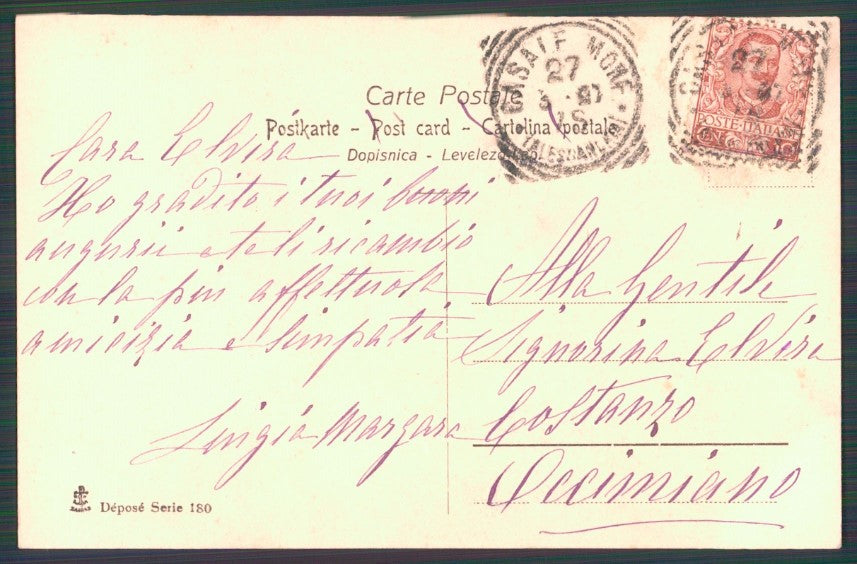 Carte Postale
Postkarte - Post card - Cartolina postale
Dopisnica - Levelezőlapó
CASALE MONF.
27
(ALESSANDRIA)
27
POSTE ITALIANE
Cara Elvira
Ho gradito i tuoi buoni
augurii e te li ricambio
con la più affettuosa
amicizia e simpatia
Luigia Margara
Alla Gentile
Signorina Elvira
Costanzo
Occimiano
Déposé Serie 180